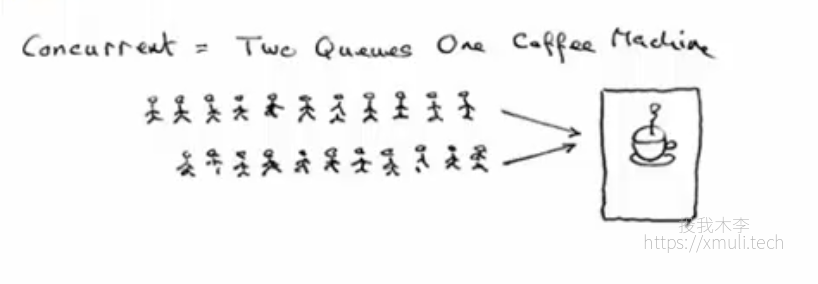 Concurrent = Two Queues One Coffee Machine
搜我木李
https://xmuli.tech